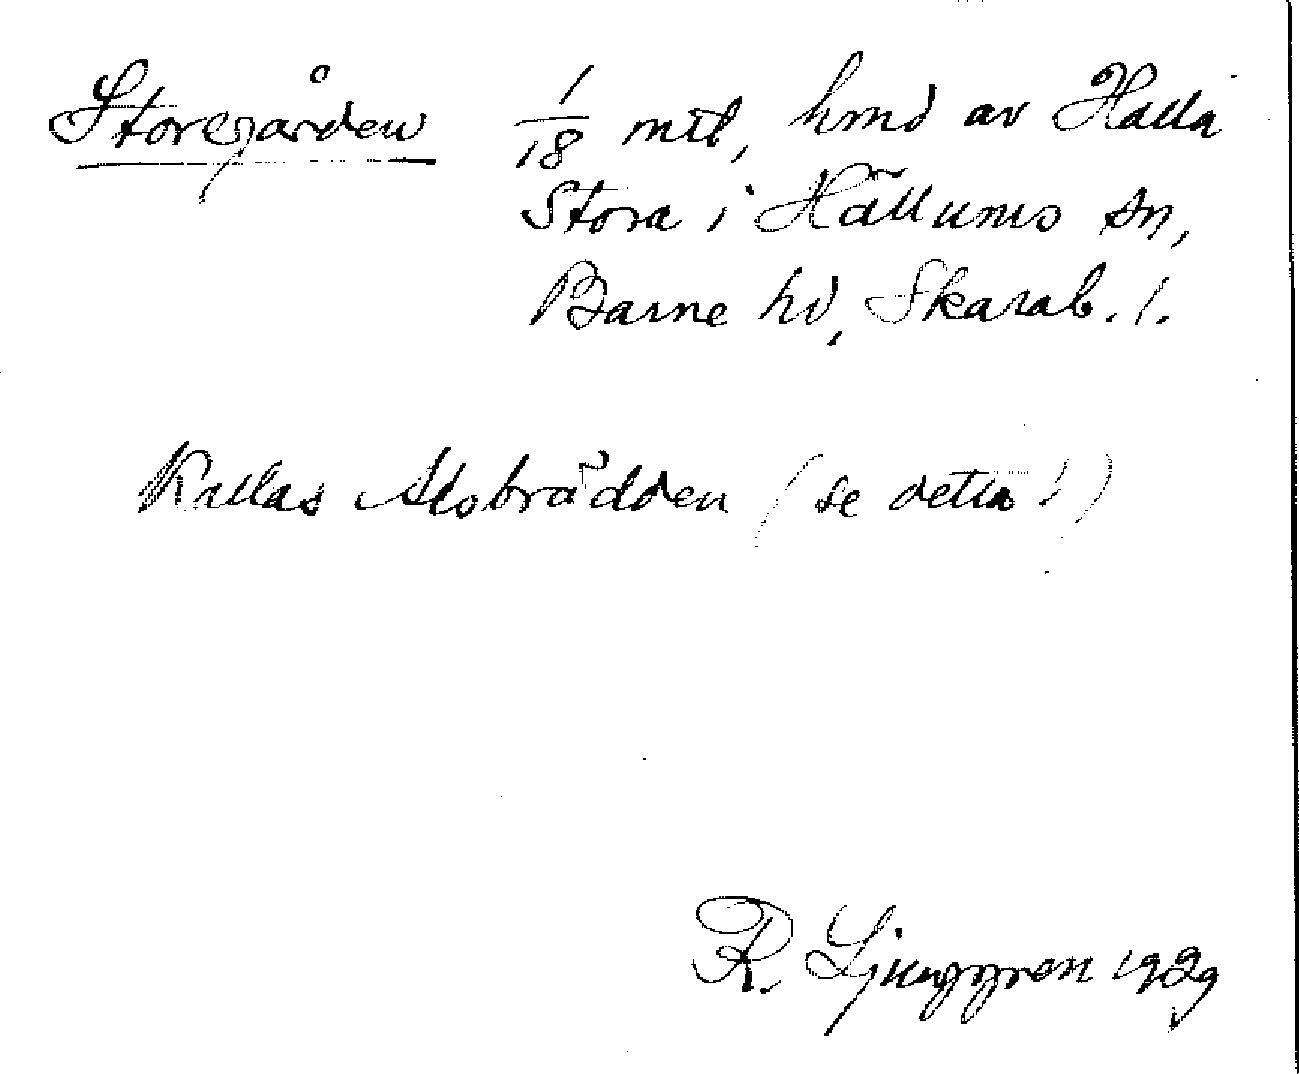 Storegården 1/18 mtl, hmd av Halla
Stora i Hällums sn,
Barne hd, Skarab. l.
Kallas Mobrädden (se detta!)
R. Ljunggren 1929